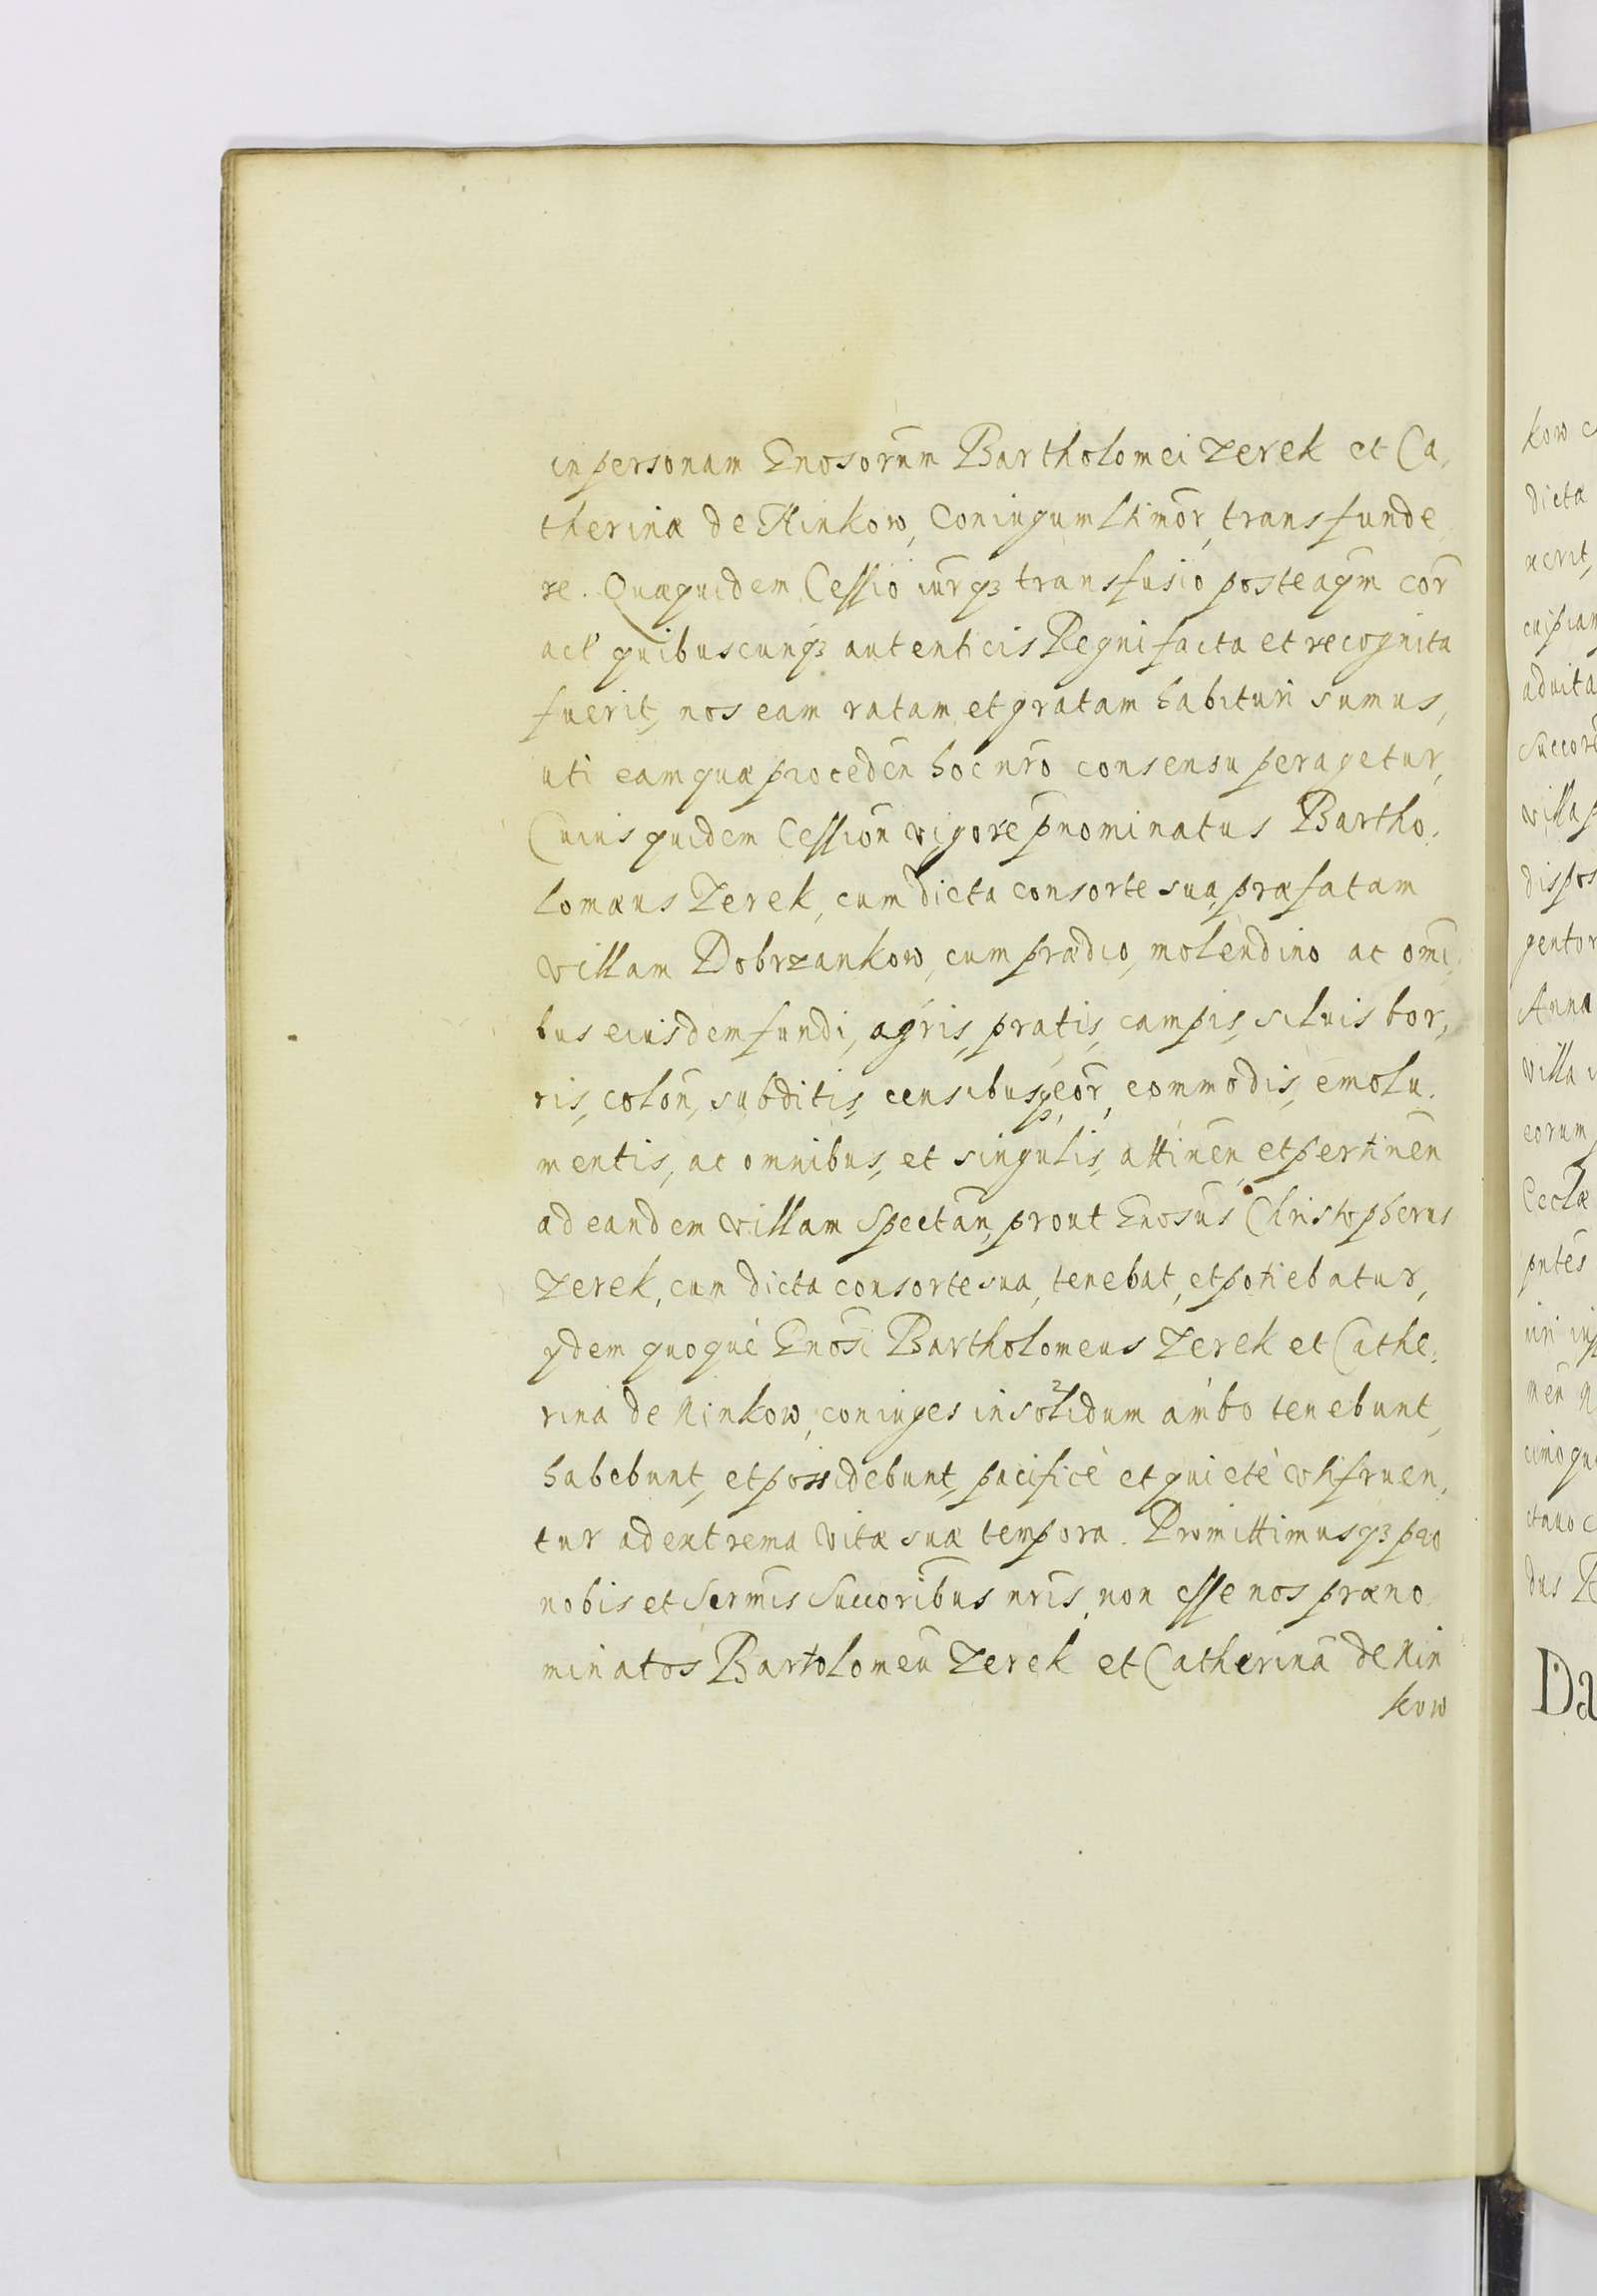 in personam Gnosorum Bartholomei Zerek et Ca,
therinæ de Ninkow, Coniugum Ltimor̃, transfunde
re. Quæquidem Cessio iur̃qʒ transfusio posteaqm̃ cor̃
act' quibuscunqʒ autenticis Regni facta et recognita
fuerit, nos eam ratam et gratam habituri sumus,
uti eamquæ proceden̄ hoc nr̃o consensu peragetur,
Cuius quidem Cession̄ vigore p̃nominatus Bartho,
lomæus Zerek, cum dicta consorte sua, præfatam
villam Dobrzankow, cum prædio, molendino ac omi,
bus eiusdem fundi, agris, pratis, campis, siluis bor,
ris, colon̄, subditis, censibusqʒ, eor̃, commodis, emolu,
mentis, ac omnibus, et singulis, attinen̄, et pertinen̄
ad eandem villam Spectan̄, prout Gnosus Christopherus
Zerek, cum dicta consorte sua, tenebat, et potiebatur,
ydem quoquè Gnosi Bartholomeus Zerek et Cathe,
rina de Ninkow, coniuges insolidum ambo tenebunt,
habebunt, et possidebunt, pacificè et quietè vtifruen,
tur ad extrema vitæ suæ tempora. Promittimusqʒ pro
nobis et Sermis Succoribus nr̃is, non esse nos præno
minatos Bartolomeū Zerek et Catherinā de Nin
kow
kow
dictæ
uerit,
cuipiam
aduita
villa p
dispos
Anna
villa
eorum
pntes
Da